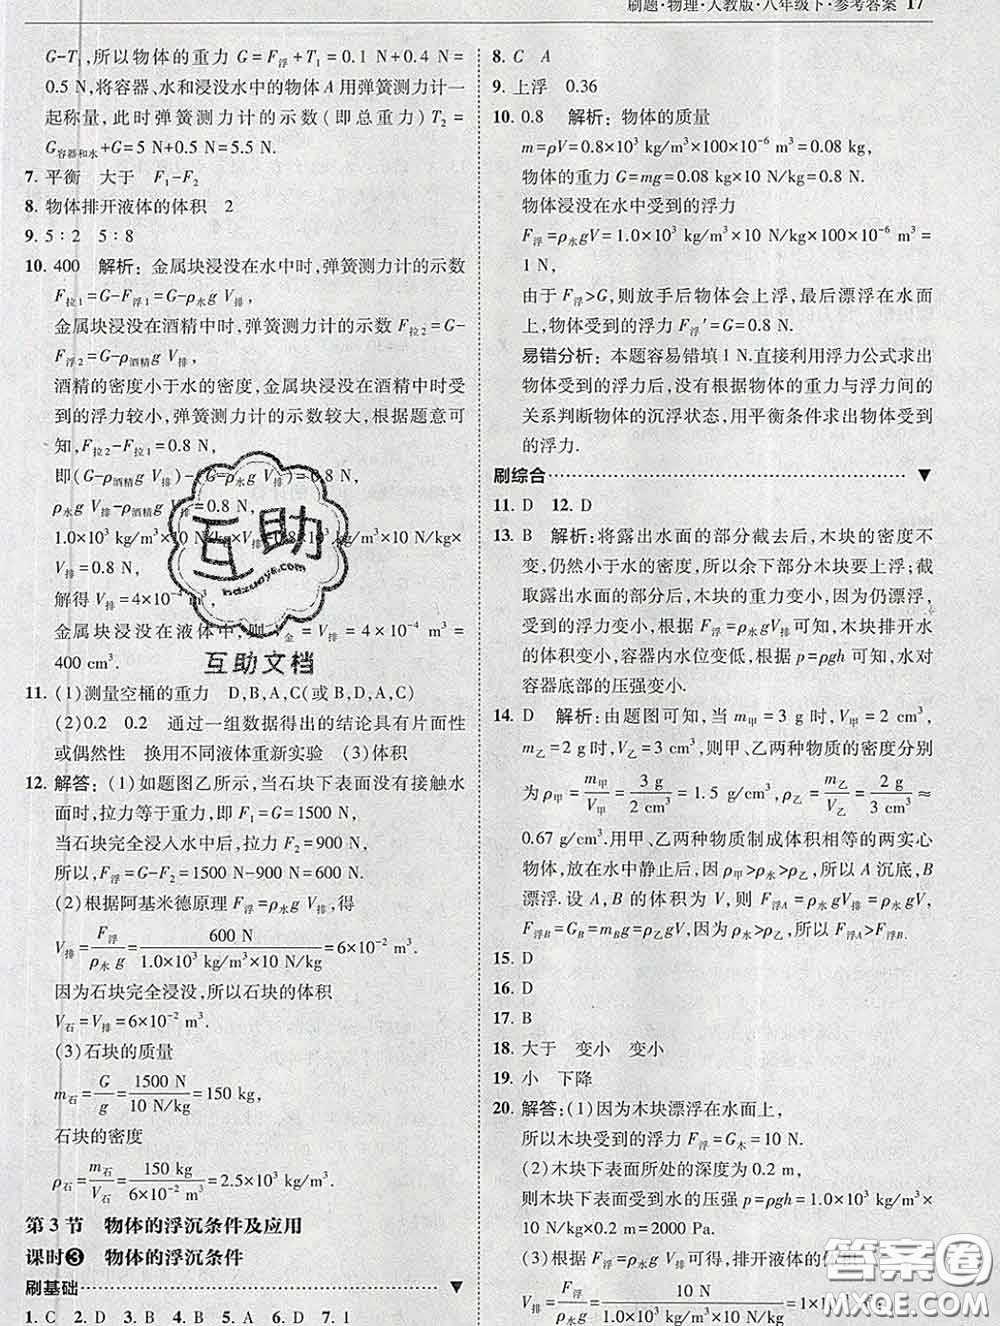 刷题·物理·人教版·八年级下·参考答案 17
G-T₁,所以物体的重力 G=F浮+T₁=0.1 N+0.4 N=
0.5 N,将容器、水和浸没水中的物体 A 用弹簧测力计一
起称量,此时弹簧测力计的示数(即总重力)T₂=
G容器和水+G=5 N+0.5 N=5.5 N.
7. 平衡 大于 F₁-F₂
8. 物体排开液体的体积 2
9. 5∶2 5∶8
10. 400 解析:金属块浸没在水中时,弹簧测力计的示数
F拉1=G-F浮1=G-ρ水g V排,
金属块浸没在酒精中时,弹簧测力计的示数 F拉2=G-
F浮2=G-ρ酒精g V排,
酒精的密度小于水的密度,金属块浸没在酒精中时受
到的浮力较小,弹簧测力计的示数较大,根据题意可
知,F拉2-F拉1=0.8 N,
即(G-ρ酒精g V排)-(G-ρ水g V排)=0.8 N,
ρ水g V排-ρ酒精g V排=0.8 N,
1.0×10³ kg/m³×10 N/kg×V排-0.8×10³ kg/m³×10 N/kg
×V排=0.8 N,
解得 V排=4×10⁻⁴ m³
金属块浸没在液体中,则 V金=V排=4×10⁻⁴ m³=
400 cm³.
11. (1)测量空桶的重力 D,B,A,C(或 B,D,A,C)
(2)0.2 0.2 通过一组数据得出的结论具有片面性
或偶然性 换用不同液体重新实验 (3)体积
12. 解答:(1)如题图乙所示,当石块下表面没有接触水
面时,拉力等于重力,即 F₁=G=1500 N
当石块完全浸入水中后,拉力 F₂=900 N,
所以,F浮=G-F₂=1500 N-900 N=600 N.
(2)根据阿基米德原理 F浮=ρ水g V排,得
V排=F浮/(ρ水 g)=600 N/(1.0×10³ kg/m³×10 N/kg)=6×10⁻² m³.
因为石块完全浸没,所以石块的体积
V石=V排=6×10⁻² m³.
(3)石块的质量
m石=G/g=1500 N/(10 N/kg)=150 kg,
石块的密度
ρ石=m石/V石=150 kg/(6×10⁻² m³)=2.5×10³ kg/m³.
第 3 节 物体的浮沉条件及应用
课时❸ 物体的浮沉条件
刷基础 ▼
1. C 2. D 3. B 4. B 5. D 6. D 7.
8. C A
9. 上浮 0.36
10. 0.8 解析:物体的质量
m=ρV=0.8×10³ kg/m³×100×10⁻⁶ m³=0.08 kg,
物体的重力 G=mg=0.08 kg×10 N/kg=0.8 N,
物体浸没在水中受到的浮力
F浮=ρ水gV=1.0×10³ kg/m³×10 N/kg×100×10⁻⁶ m³=
1 N,
由于 F浮>G,则放手后物体会上浮,最后漂浮在水面
上,物体受到的浮力 F浮′=G=0.8 N.
易错分析:本题容易错填 1 N.直接利用浮力公式求出
物体受到的浮力后,没有根据物体的重力与浮力间的
关系判断物体的沉浮状态,用平衡条件求出物体受到
的浮力.
刷综合 ▼
11. D 12. D
13. B 解析:将露出水面的部分截去后,木块的密度不
变,仍然小于水的密度,所以余下部分木块要上浮;截
取露出水面的部分后,木块的重力变小,因为仍漂浮,
受到的浮力变小,根据 F浮=ρ水gV排可知,木块排开水
的体积变小,容器内水位变低,根据 p=ρgh 可知,水对
容器底部的压强变小.
14. D 解析:由题图可知,当 m甲=3 g 时,V甲=2 cm³,
m乙=2 g 时,V乙=3 cm³,则甲、乙两种物质的密度分别
为 ρ甲=m甲/V甲=3 g/2 cm³=1.5 g/cm³,ρ乙=m乙/V乙=2 g/3 cm³≈
0.67 g/cm³.用甲、乙两种物质制成体积相等的两实心
物体,放在水中静止后,因为 ρ甲>ρ水>ρ乙,所以 A 沉底,B
漂浮.设 A、B 的体积为 V,则 F浮A=ρ水gV排=ρ水gV,
F浮B=G_B=m_Bg=ρ乙gV,因为 ρ水>ρ乙,所以 F浮A>F浮B.
15. D
16. D
17. B
18. 大于 变小 变小
19. 小 下降
20. 解答:(1)因为木块漂浮在水面上,
所以木块受到的浮力 F浮=G木=10 N.
(2)木块下表面所处的深度为 0.2 m,
则木块下表面受到水的压强 p=ρgh=1.0×10³ kg/m³×
10 N/kg×0.2 m=2000 Pa.
(3)根据 F浮=ρ水gV排可得,排开液体的体积
V排=F浮/(ρ水g)=10 N/(1.0×10³ kg/m³×10 N/kg)
互助
hdzuoye.com
互助文档
答案圈
MXQE.COM